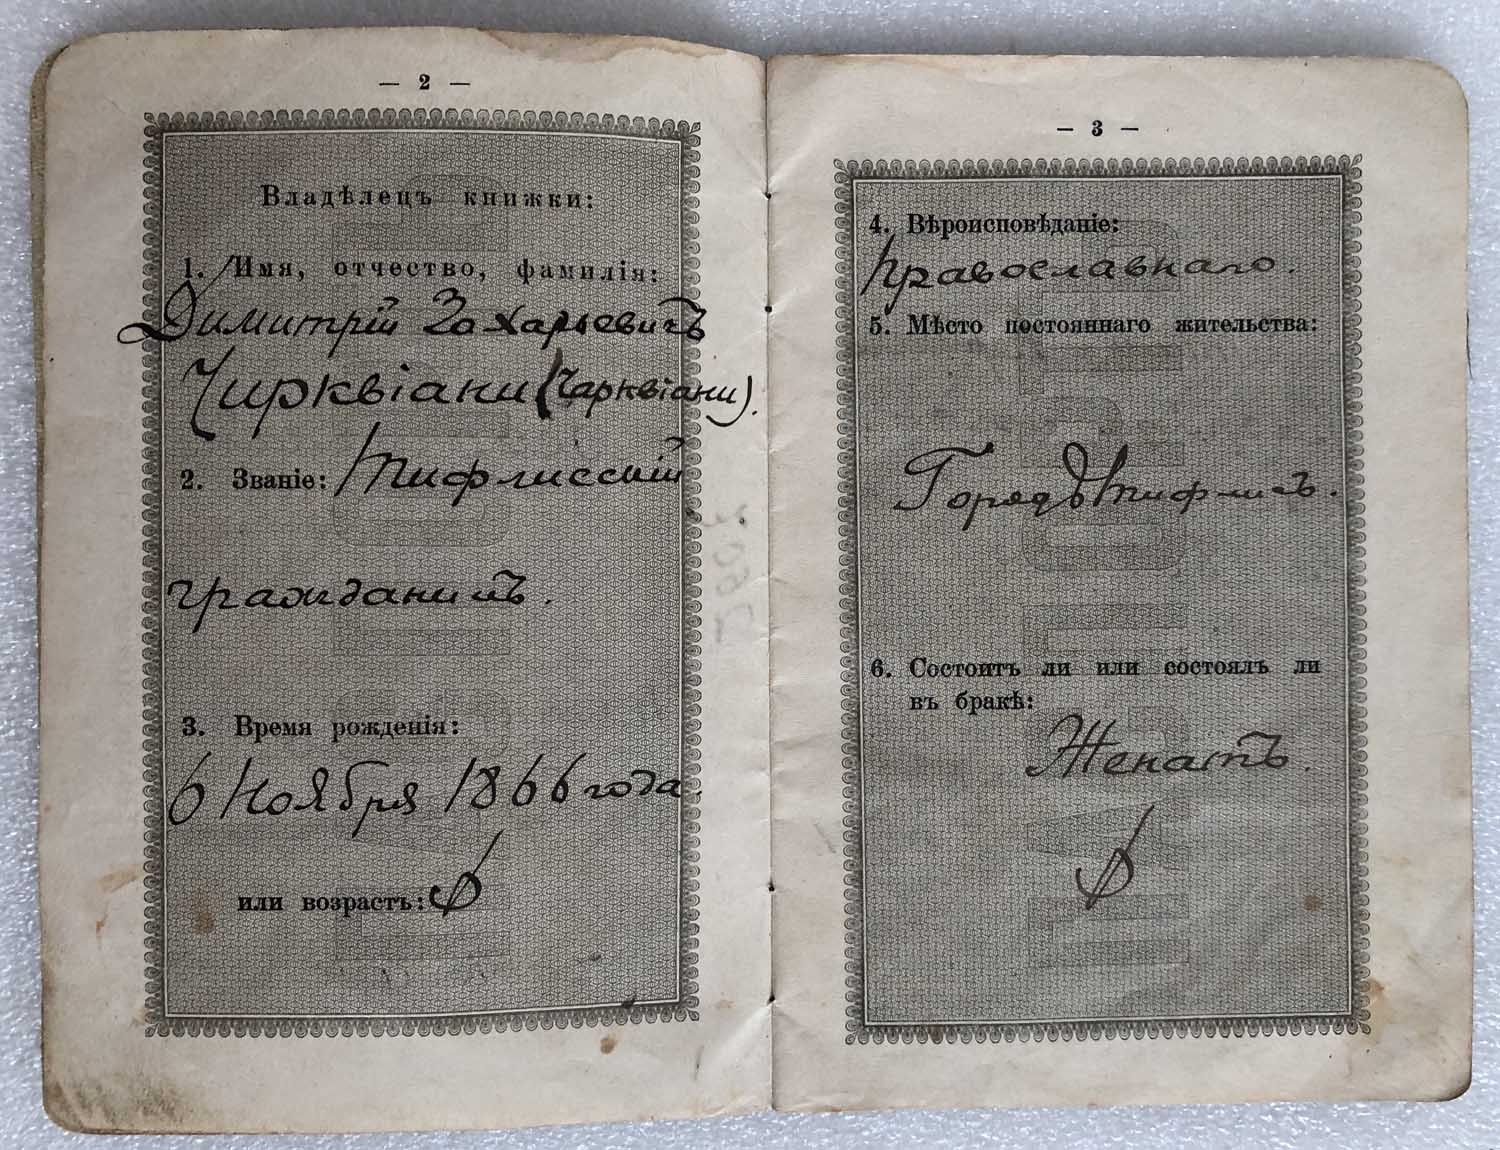 — 2 —
Владѣлецъ книжки:
1. Имя, отчество, фамилія:
Димитрій Захарьевичъ
Чирквіани (Чарквіани).
2. Званіе: Тифлисскій
гражданинъ.
3. Время рожденія:
6 Ноября 1866 года.
или возрастъ:
— 3 —
4. Вѣроисповѣданіе:
Православнаго.
5. Мѣсто постояннаго жительства:
Городъ Тифлисъ.
6. Состоитъ ли или состоялъ ли
въ бракѣ:
Женатъ.